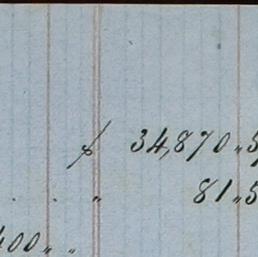 $ 34,870 „ 5
. . „ 81 „ 5
400 „ „